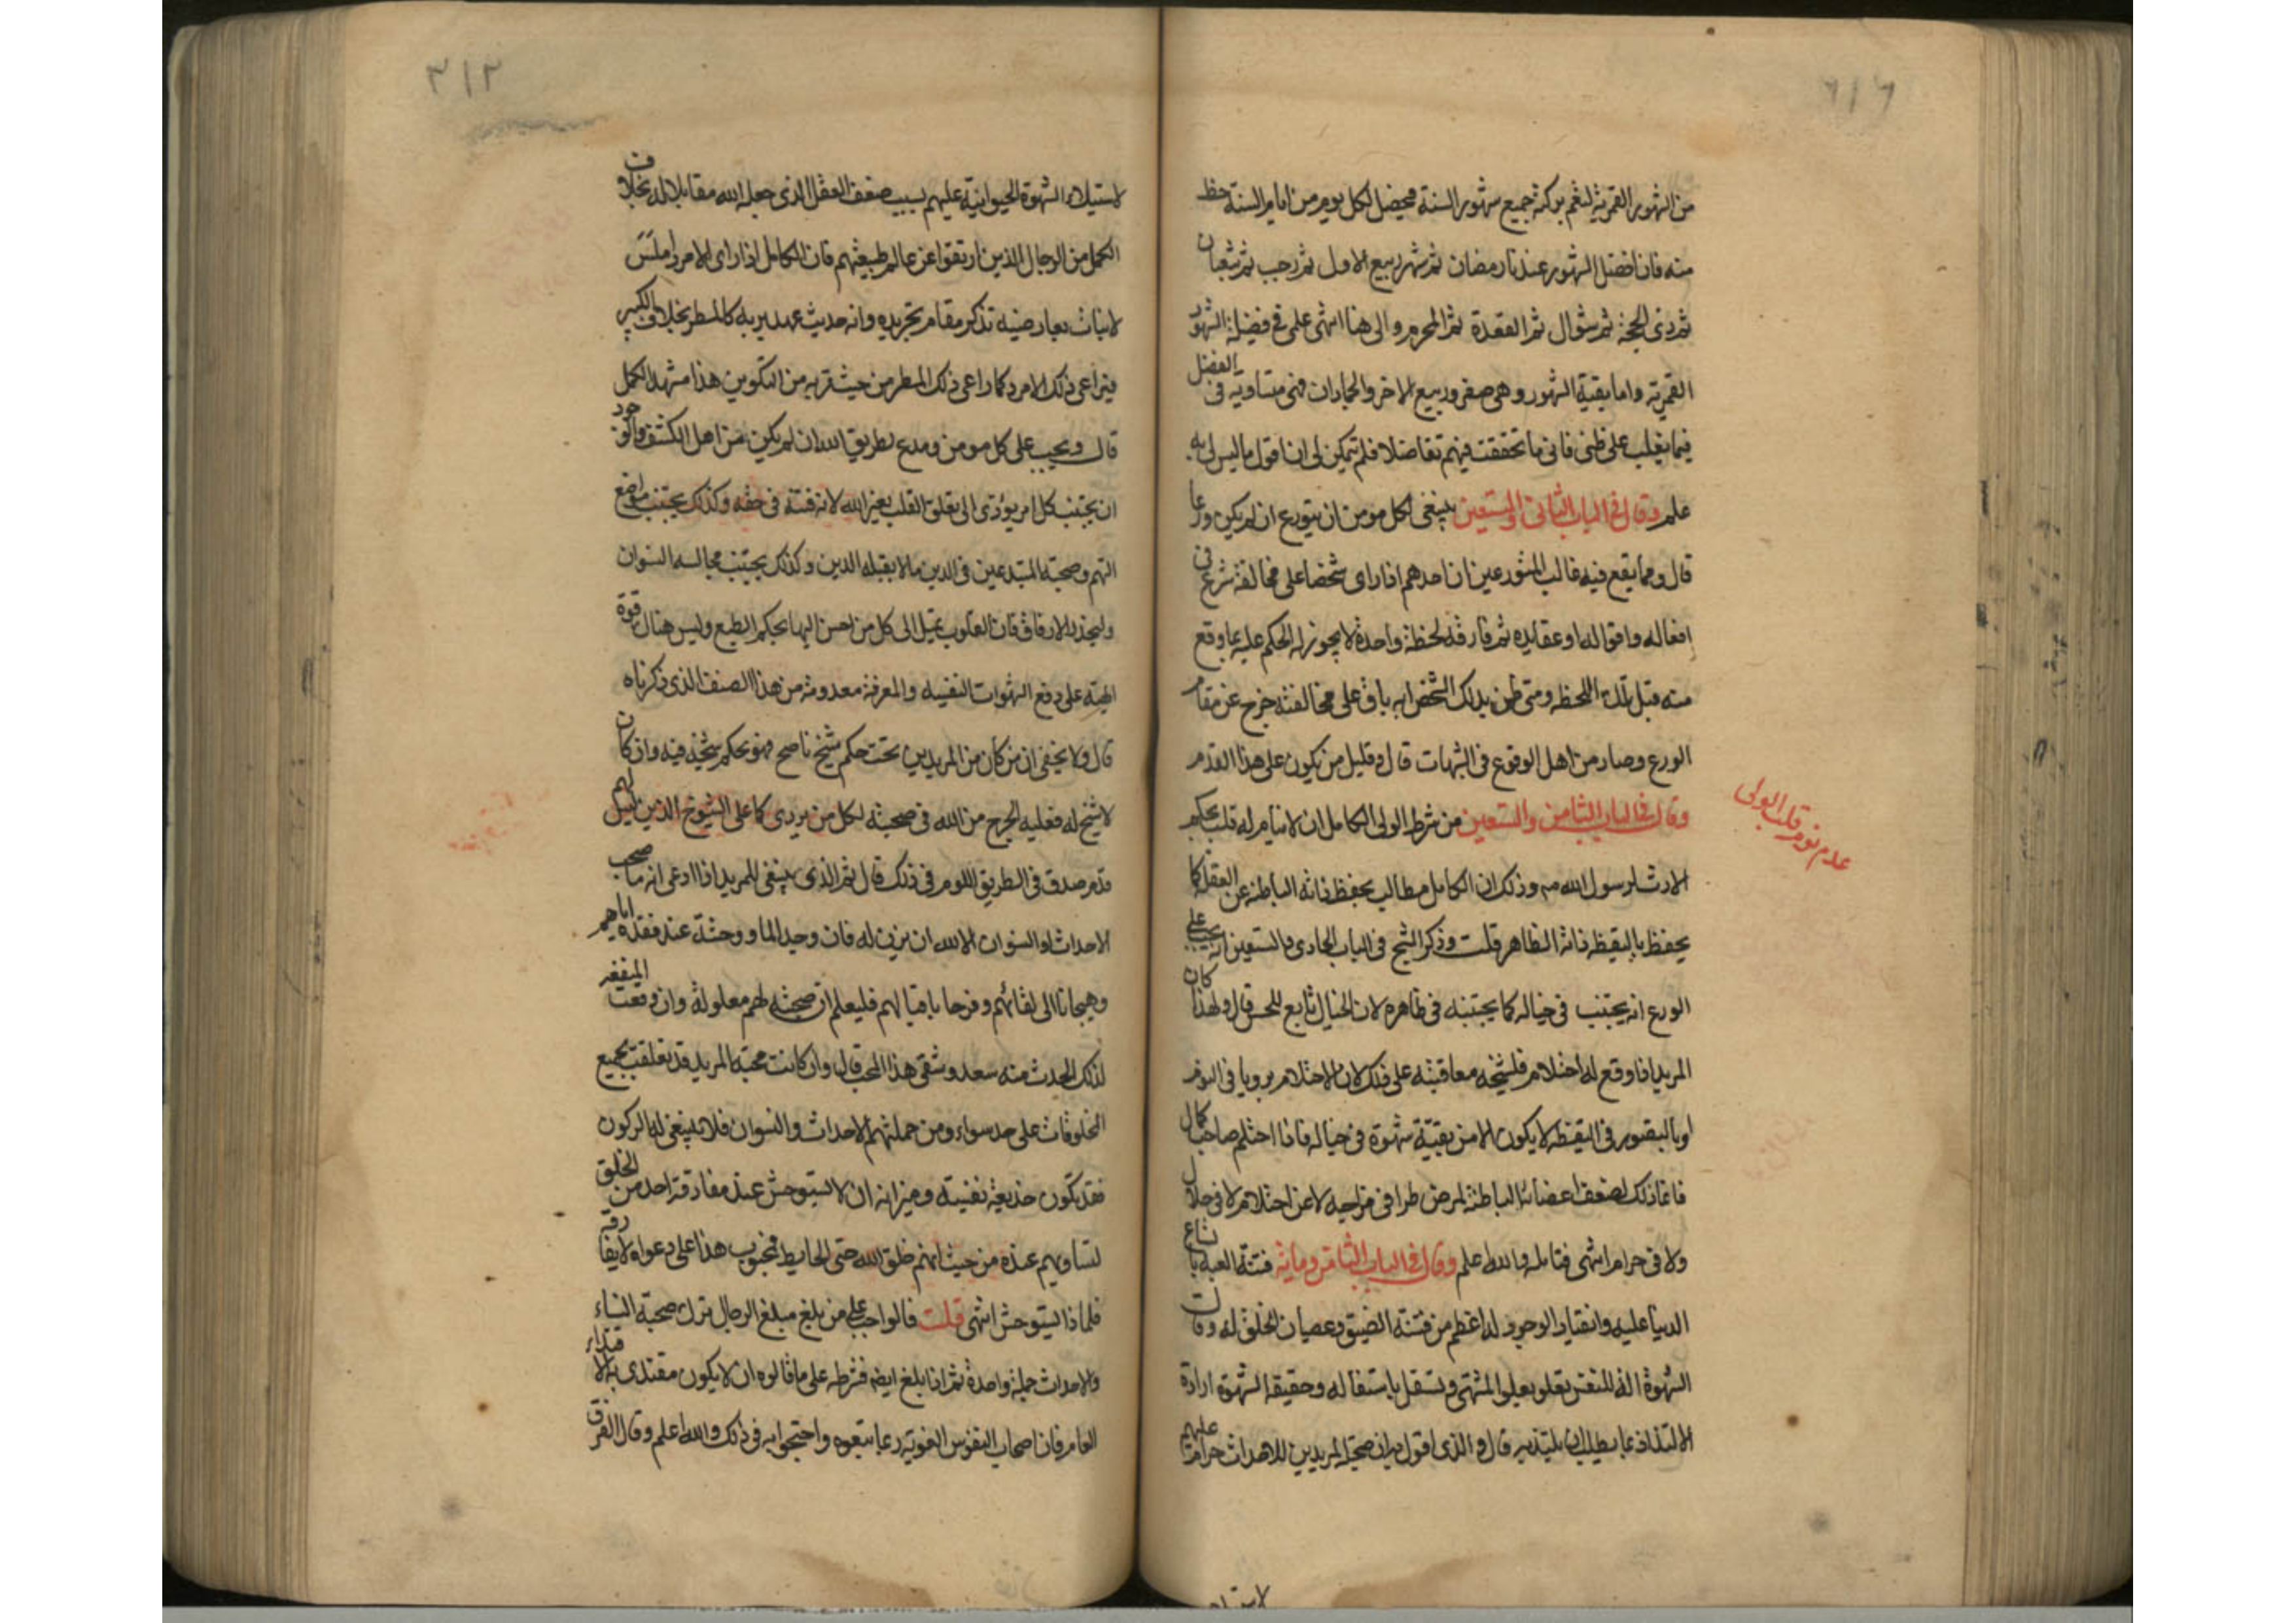 من الشهور القمرية لتعم بركته جميع شهور السنة فيحصل لكل يوم من ايام السنة حظ
منه فان افضل الشهور عندنا رمضان ثم شهر ربيع الاول ثم رجب ثم شعبان
ثم ذى الحجة ثم شوال ثم القعدة ثم المحرم والى هنا انتهى علمى فى فضيلة الشهور
القمرية واما بقية الشهور وهى صفر وربيع الاخر والجمادان فهى متساوية فى الفضل
فيما يغلب على ظنى فانى ما تحققت فيهم تفاضلا فلم يتمكن لى ان اقول ما ليس لى به
علم وقال فى الباب الثانى والتسعين ينبغى لكل مومن ان يتورع ان لم يكن ورعا
قال ومما يقع فيه غالب المتورعين ان احدهم اذا راى شخصا على مخالفة شرع فى
افعاله واقواله او عقايده ثم فارقه لحظة واحدة لا يجوز له الحكم عليه بما وقع
منه قبل تلك اللحظه ومتى ظن بذلك الشخص انه باق على مخالفته خرج عن مقام
الورع وصار من اهل الوقوع فى الشبهات قال وقليل من يكون على هذا القدم
وقال فى الباب الثامن والتسعين من شرط الولى الكامل ان لا ينام له قلب بحكم
عدم نوم قلب الولى
الارث لرسول الله صم وذلك ان الكامل مطالب بحفظ ذاته الباطنه عن الغفلة كما
يحفظ باليقظه ذاته الظاهر قلت وذكر الشيخ فى الباب الحادى والتسعين انه يجب على
الورع انه يجتنب فى خياله كما يجتنبه فى ظاهره لان الخيال تابع للحس قال ولهذا كان
المريد اذا وقع له احتلام فلشيخه معاقبته على ذلك لان الاحتلام برويا فى النوم
او بالتصور فى اليقظه لا يكون الا من بقية شهوة فى خياله فاذا احتلم صاحب كمال
فانما ذلك لضعف اعضائه الباطنة لمرض طرا فى مزاجه لا عن احتلام لا فى حلال
ولا فى حرام انتهى فتامله والله اعلم وقال فى الباب الثامن وماية فتنة العبد باتساع
الدنيا عليه وانقياد الوجود له اعظم من فتنة الضيق وعصيان الخلق له وقال
الشهوة الة للنفس تعلو بعلو المشتهى وتسفل باستفاله وحقيقة الشهوة ارادة
الالتذاذ بما يطلب ان يلتذ به قال والذى اقول به ان صحبة المريدين للاحداث حرام عليهم
لاستيلاء الشهوة الحيوانية عليهم بسبب ضعف العقل الذى جعله الله مقابلا له بخلاف
الكمل من الرجال الذين ارتقوا عن عالم طبيعتهم فان الكامل اذا راى الامرد املس
لا نبات بعارضيه تذكر مقام تجريده وانه حديث عهد بربه كالمطر بخلاف الكبير
فيراعى ذلك الامرد كما راعى ذلك المطر من حيث قربه من التكوين هذا مشهد الكمل
قال ويجب على كل مومن ومدع لطريق الله ان لم يكن من اهل الكشف والوجود
ان يجتنب كل امر يؤدى الى تعلق القلب بغير الله لانه فتنة فى حقه وكذلك يجتنب مواضع
التهم وصحبة المبتدعين فى الدين ما لا يقبله الدين وكذلك يجتنب مجالسه النسوان
وليحذر الارفاق فان القلوب تميل الى كل من احسن اليها بحكم الطبع وليس هناك قوة
الهية على دفع الشهوات النفسيه والمعرفة معدومة من هذا الصنف الذى ذكرناه
قال ولا يخفى ان من كان من المريدين تحت حكم شيخ ناصح فهو بحكم شيخه فيه وان كان
لا شيخ له فعليه الحرج من الله فى صحبته لكل من يردى كما على الشيوخ الذين ليس لهم
قدم صدق فى الطريق اللوم فى ذلك قال ثم الذى ينبغى للمريد اذا ادعى انه ما صحب
الاحداث او النسوان الا لله ان يزن له فان وجد الما ووحشة عند فقده اياهم
وهيجانا الى لقائهم وفرحا باقبالهم فليعلم ان صحبته لهم معلولة وان وقعت المنفعه
لذلك الحدث منه سعد وشقى هذا المحب قال وان كانت محبة المريد قد تعلقت بجميع
المخلوقات على حد سواء ومن جملتهم الاحداث والنسوان فلا ينبغى له الركون
فقد تكون خديعة نفسيته وميزانه ان لا يستوحش عند مفارقة احد من الخلق
لتساويهم عنده من حيث انهم خلق الله حتى الحايط فمحبوب هذا على دعواه لا يفارقه
فلماذا يستوحش انتهى قلت فالواجب على من بلغ مبلغ الرجال ترك صحبة النساء
والاحداث جملة واحدة ثم اذا بلغ ايضا فشرطه على ما قالوه ان لا يكون مقتدى به الاقتداء
العام فان اصحاب النفوس الغوية ربما تبعوه واحتجوا به فى ذلك والله اعلم وقال الفرق